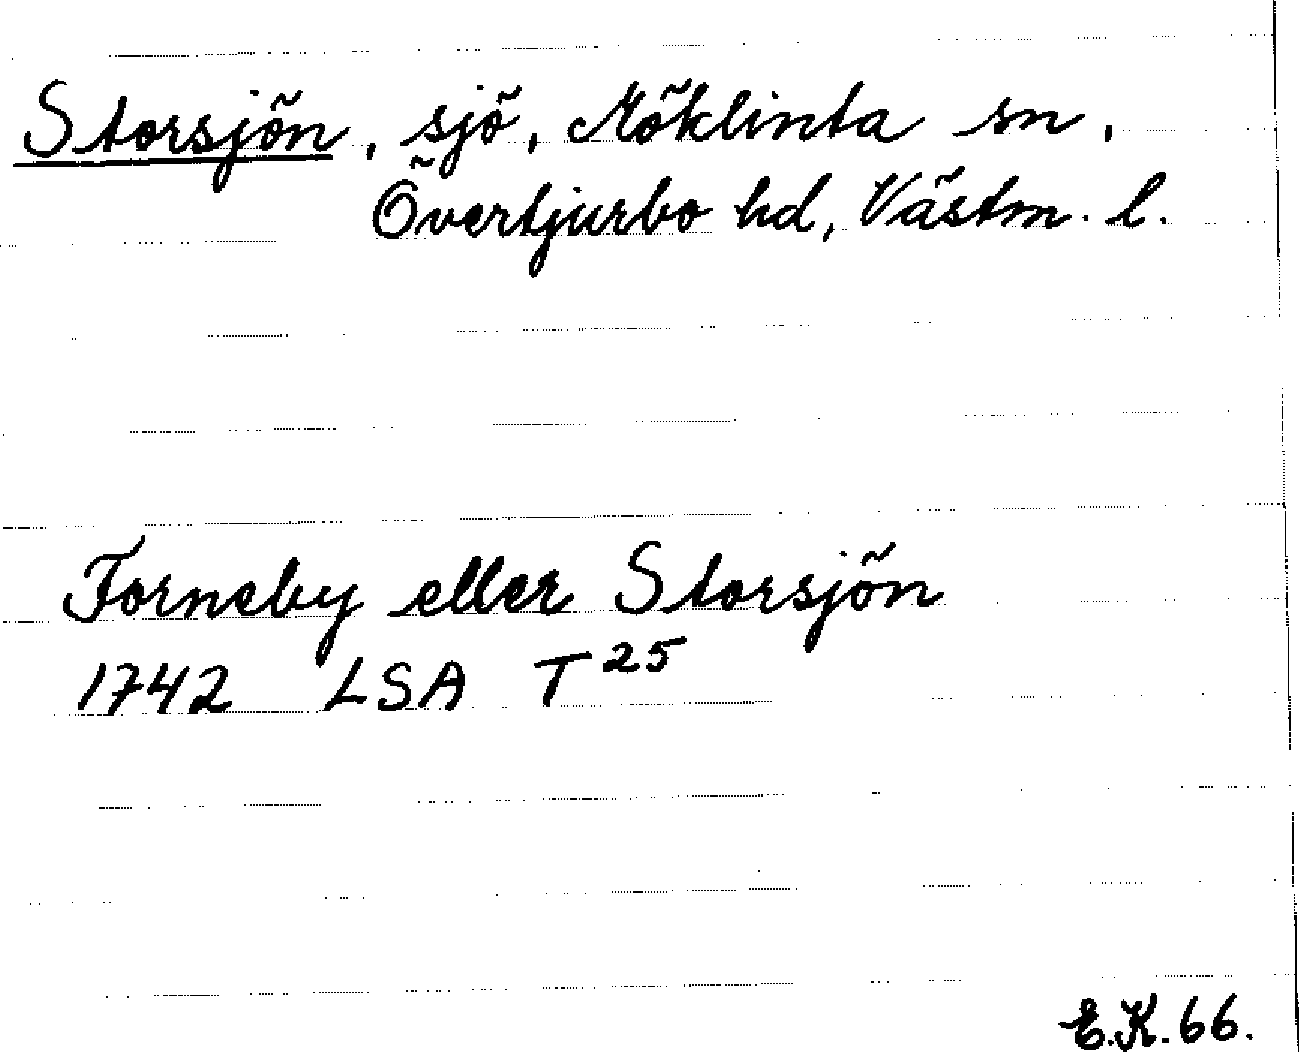 Storsjön, sjö, Möklinta sn,
Övertjurbo hd, Västm. l.
Forneby eller Storsjön
1742 LSA T 25
E.K. 66.